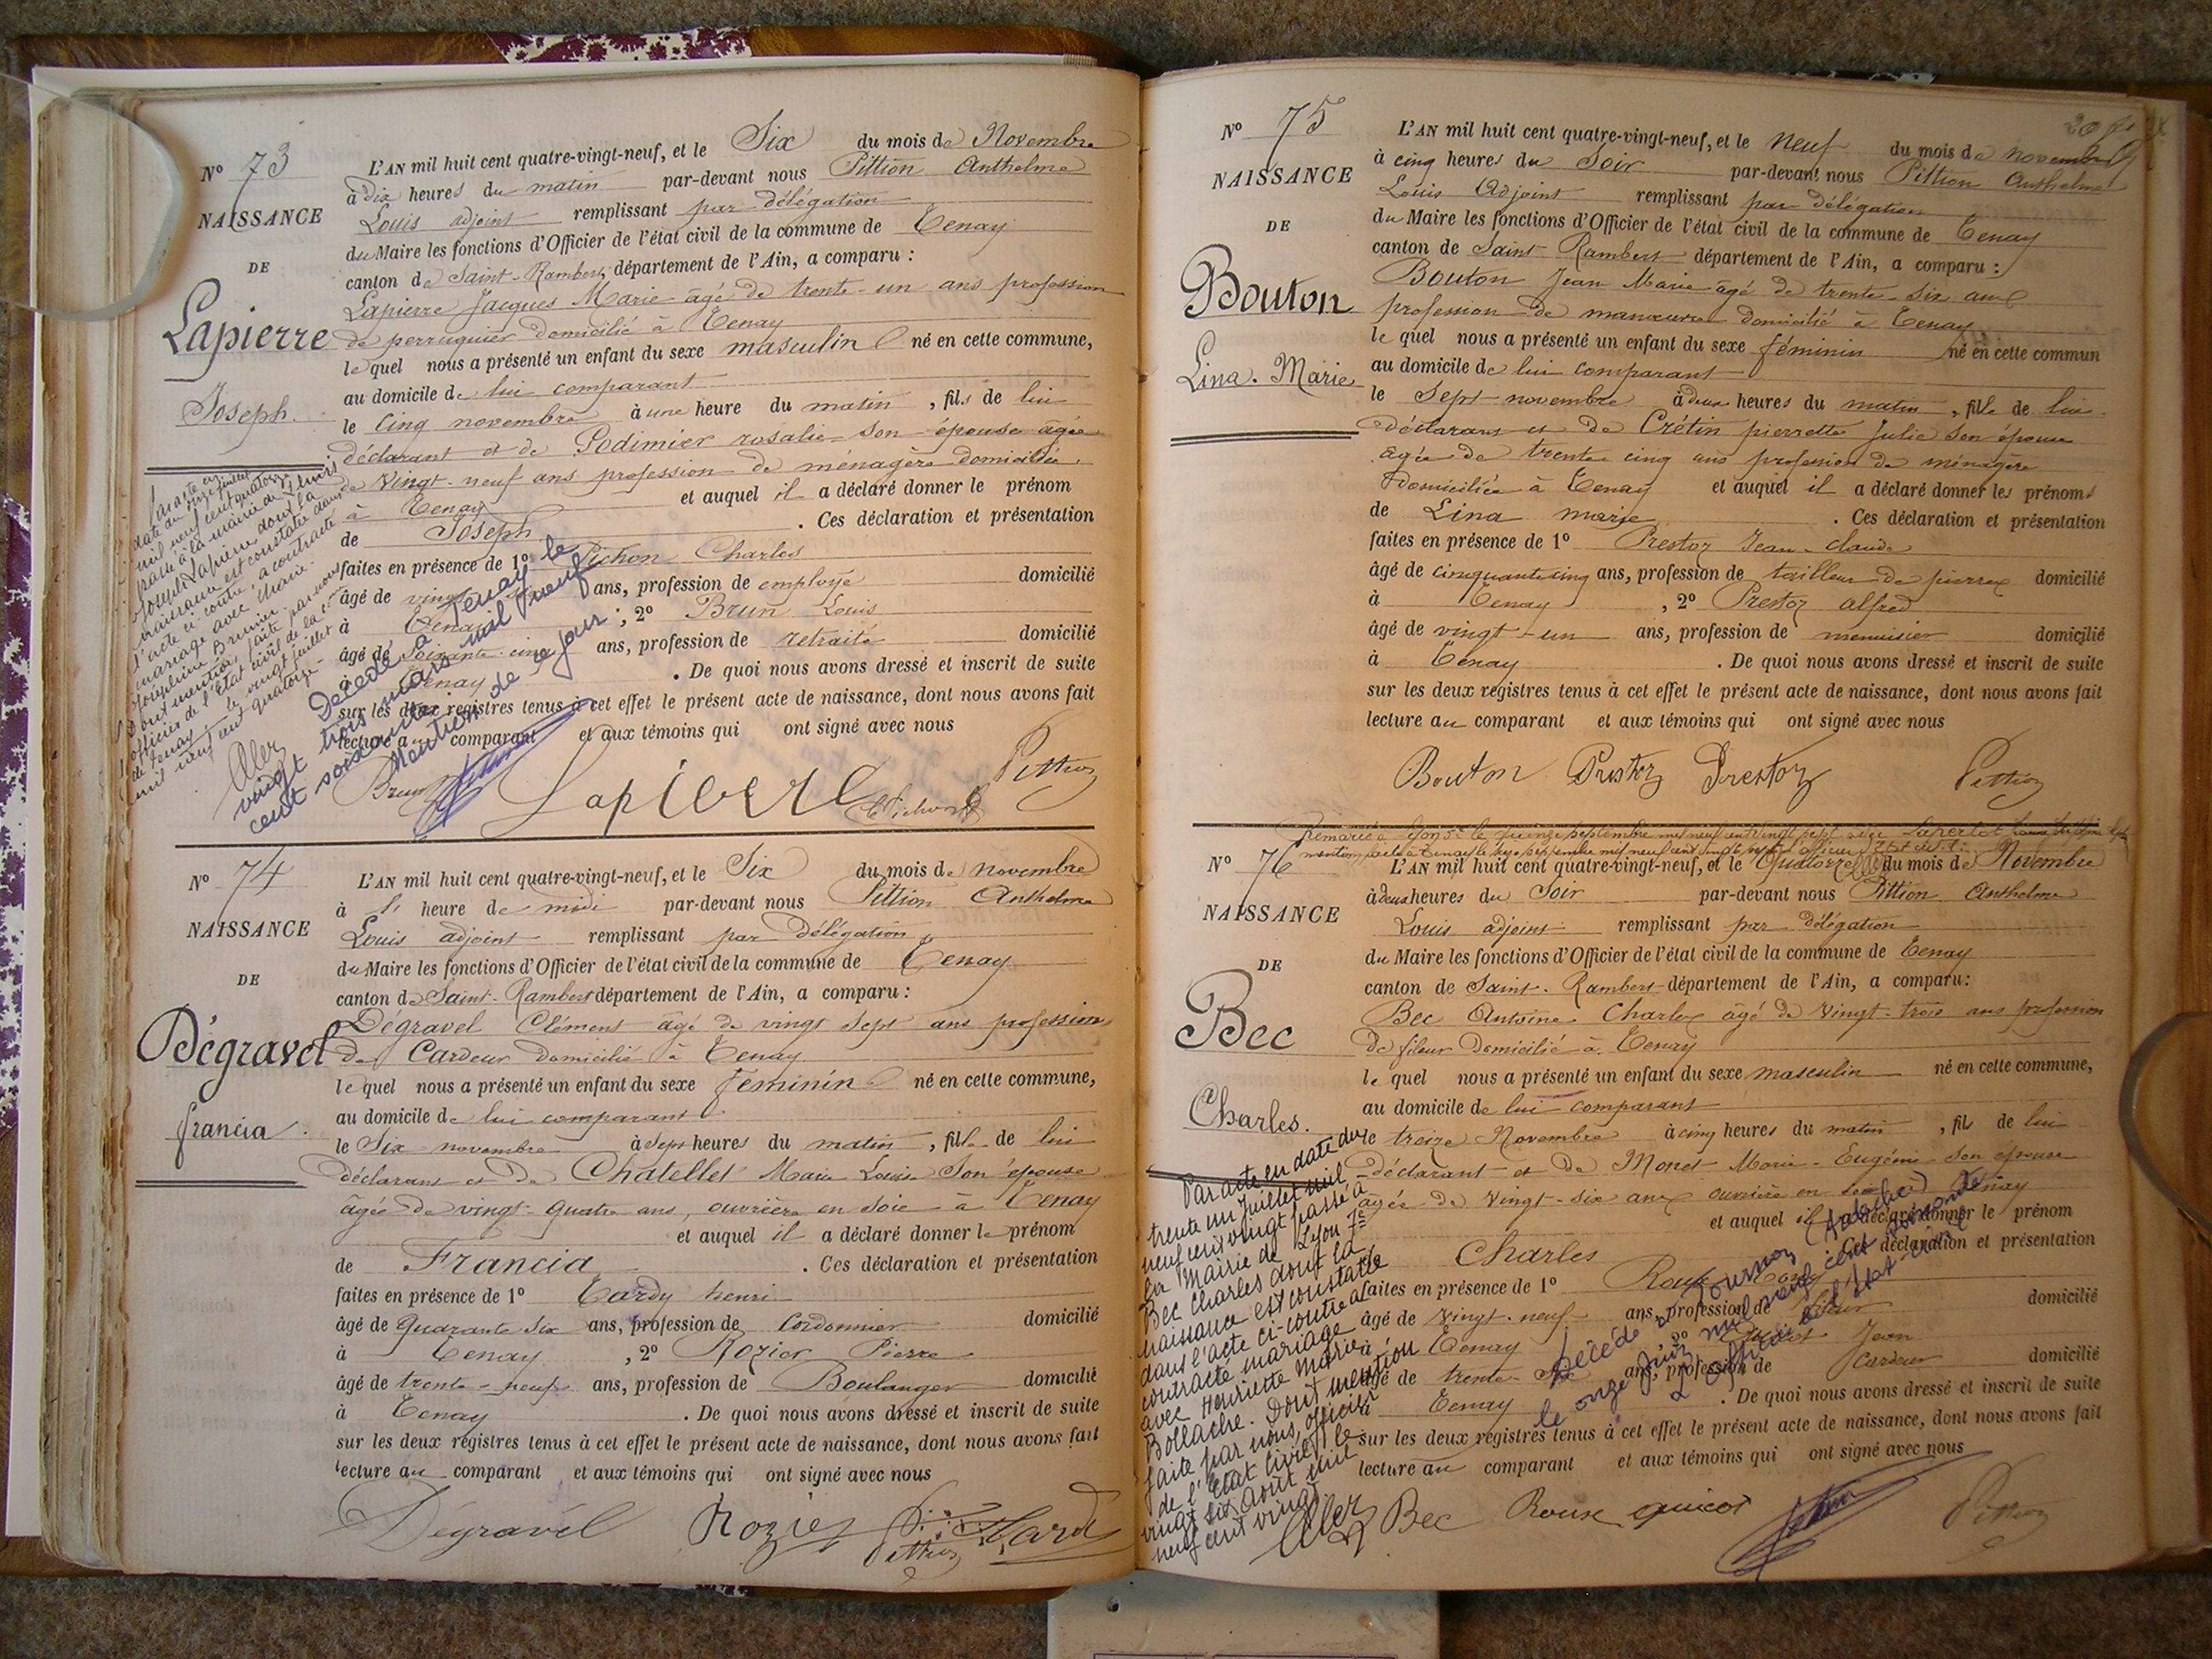 N° 73
NAISSANCE
DE
Lapierre
Joseph.
L'AN mil huit cent quatre-vingt-neuf, et le Six du mois de Novembre
à dix heures du matin par-devant nous Pittion Anthelme
Louis adjoint remplissant par délégation
du Maire les fonctions d'Officier de l'état civil de la commune de Tenay
canton de Saint-Rambert département de l'Ain, a comparu :
Lapierre Jacques Marie âgé de trente-un ans profession
de perruquier domicilié à Tenay
lequel nous a présenté un enfant du sexe masculin né en cette commune,
au domicile de lui comparant
le cinq novembre à une heure du matin, fils de lui
déclarant et de Podimier rosalie son épouse âgée
de vingt-neuf ans profession de ménagère domiciliée
à Tenay et auquel il a déclaré donner le prénom
de Joseph. Ces déclaration et présentation
faites en présence de 1° Pichon Charles
âgé de vingt ans, profession de employé domicilié
à Tenay ; 2° Brun Louis
âgé de soixante-cinq ans, profession de retraité domicilié
à Tenay. De quoi nous avons dressé et inscrit de suite
sur les deux registres tenus à cet effet le présent acte de naissance, dont nous avons fait
lecture au comparant et aux témoins qui ont signé avec nous
Par acte en
date du onze juillet
mil neuf cent quatorze
passé à la mairie de
Joseph Lapierre dont la
naissance est constatée dans
l'acte ci-contre a contracté
mariage avec Marie
Joséphine Brunier.
Dont mention faite par nous
officier de l'état civil de la
de Tenay le vingt juillet
mil neuf cent quatorze
Décédé à Tenay le
vingt trois mars mil neuf
cent soixante
Mention de ce jour
Brun Lapierre Pichon Pittion
N° 74
NAISSANCE
DE
Dégravel
francia.
L'AN mil huit cent quatre-vingt-neuf, et le Six du mois de novembre
à l' heure de midi par-devant nous Pittion Anthelme
Louis adjoint remplissant par délégation
du Maire les fonctions d'Officier de l'état civil de la commune de Tenay
canton de Saint-Rambert département de l'Ain, a comparu :
Dégravel Clément âgé de vingt sept ans profession
de Cardeur domicilié à Tenay
lequel nous a présenté un enfant du sexe féminin né en cette commune,
au domicile de lui comparant
le Six novembre à sept heures du matin, fille de lui
déclarant et de Chatellet Marie Louise Son épouse
âgée de vingt-quatre ans, ouvrière en soie à Tenay
et auquel il a déclaré donner le prénom
de Francia. Ces déclaration et présentation
faites en présence de 1° Tardy henri
âgé de quarante six ans, profession de Cordonnier domicilié
à Tenay, 2° Rozier Pierre
âgé de trente-neuf ans, profession de Boulanger domicilié
à Tenay. De quoi nous avons dressé et inscrit de suite
sur les deux registres tenus à cet effet le présent acte de naissance, dont nous avons fait
lecture au comparant et aux témoins qui ont signé avec nous
Dégravel Rozier Pittion Tardy
N° 75
NAISSANCE
DE
Bouton
Lina. Marie
L'AN mil huit cent quatre-vingt-neuf, et le neuf du mois de novembre
à cinq heures du Soir par-devant nous Pittion Anthelme
Louis Adjoint remplissant par délégation
du Maire les fonctions d'Officier de l'état civil de la commune de Tenay
canton de Saint-Rambert département de l'Ain, a comparu :
Bouton Jean Marie âgé de trente-six ans
profession de manœuvre domicilié à Tenay
lequel nous a présenté un enfant du sexe féminin né en cette commun
au domicile de lui comparant
le Sept novembre à deux heures du matin, fille de lui
déclarant et de Crétin pierrette Julie Son épouse
âgée de trente cinq ans profession de ménagère
domiciliée à Tenay et auquel il a déclaré donner les prénoms
de Lina marie. Ces déclaration et présentation
faites en présence de 1° Prestoz Jean-claude
âgé de cinquante cinq ans, profession de tailleur de pierres domicilié
à Tenay, 2° Prestoz alfred
âgé de vingt-un ans, profession de menuisier domicilié
à Tenay. De quoi nous avons dressé et inscrit de suite
sur les deux registres tenus à cet effet le présent acte de naissance, dont nous avons fait
lecture au comparant et aux témoins qui ont signé avec nous
Bouton Prestoz Prestoz Pittion
Remarié à Lyon 5e le quinze septembre mil neuf cent vingt sept avec Laperlot
mention faite à Tenay le septembre mil neuf cent vingt sept officier d'Etat civil
N° 76
NAISSANCE
DE
Bec
Charles.
L'AN mil huit cent quatre-vingt-neuf, et le Quatorze du mois de Novembre
à deux heures du Soir par-devant nous Pittion Anthelme
Louis adjoint remplissant par délégation
du Maire les fonctions d'Officier de l'état civil de la commune de Tenay
canton de Saint-Rambert département de l'Ain, a comparu :
Bec Antoine Charles âgé de vingt-trois ans profession
de fileur domicilié à Tenay
lequel nous a présenté un enfant du sexe masculin né en cette commune,
au domicile de lui comparant
le treize Novembre à cinq heures du matin, fils de lui
déclarant et de Monet Marie-Eugénie Son épouse
âgée de vingt-six ans ouvrière en soie à Tenay
et auquel il a déclaré donner le prénom
Charles. Ces déclaration et présentation
faites en présence de 1° Roux
âgé de vingt-neuf ans, profession de fileur domicilié
à Tenay, 2° Jean
âgé de trente-six ans, profession de Cardeur domicilié
à Tenay. De quoi nous avons dressé et inscrit de suite
sur les deux registres tenus à cet effet le présent acte de naissance, dont nous avons fait
lecture au comparant et aux témoins qui ont signé avec nous
Par acte en date du
trente un Juillet mil
neuf cent vingt passé à
la Mairie de Lyon 7e
Bec Charles dont la
naissance est constatée
dans l'acte ci-contre a
contracté mariage
avec Henriette Marie
Bollache. Dont mention
faite par nous, officier
de l'Etat civil, le
vingt six Août mil
neuf cent vingt
Décédé à Tournon (Ardèche)
le onze Juin mil neuf cent soixante
L'Officier de l'Etat-civil
Bec Roux Pittion